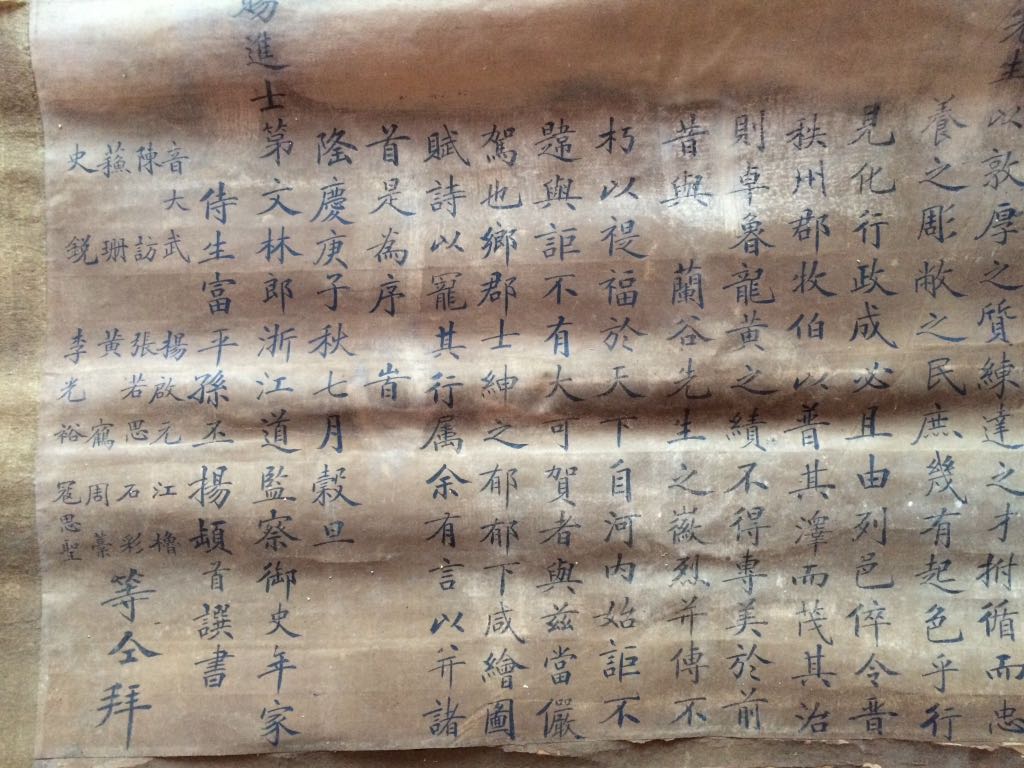 先生以敦厚之質練達之才拊循而忠
養之彫敝之民庶幾有起色乎行
見化行政成必且由列邑倅令晋
秩州郡牧伯以普其澤而茂其治
則卓魯龍黃之績不得專美於前
昔與 蘭谷先生之徽烈并傳不
朽以禔福於天下自河内始詎不
韙與詎不有大可賀者與兹當儼
駕也鄉郡士紳之郁郁下咸繪圖
賦詩以寵其行属余有言以并諸
首是為序 旹
隆慶庚子秋七月穀旦
賜進士第文林郎浙江道監察御史年家
侍生富平孫丕揚頓首譔書
音大武 揚啟元 江櫓
陳訪 張若思 石彩
蘇珊 黃寯 周藁
史鋭 李光裕 冦思聖
等仝拜